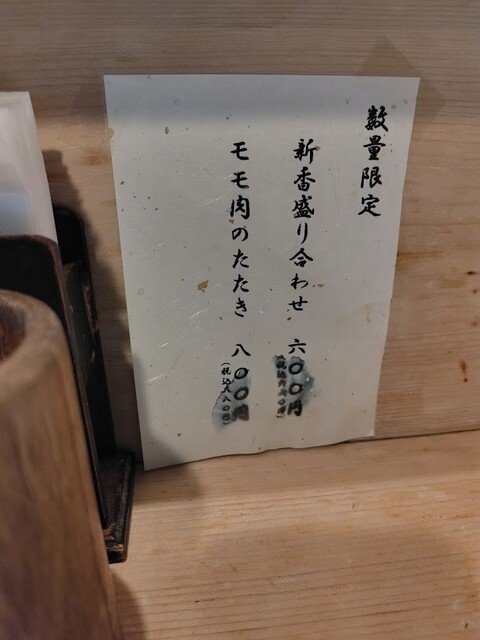 数量限定
新香盛り合わせ 六〇〇円
(税込六六〇円)
モモ肉のたたき 八〇〇円
(税込八八〇円)